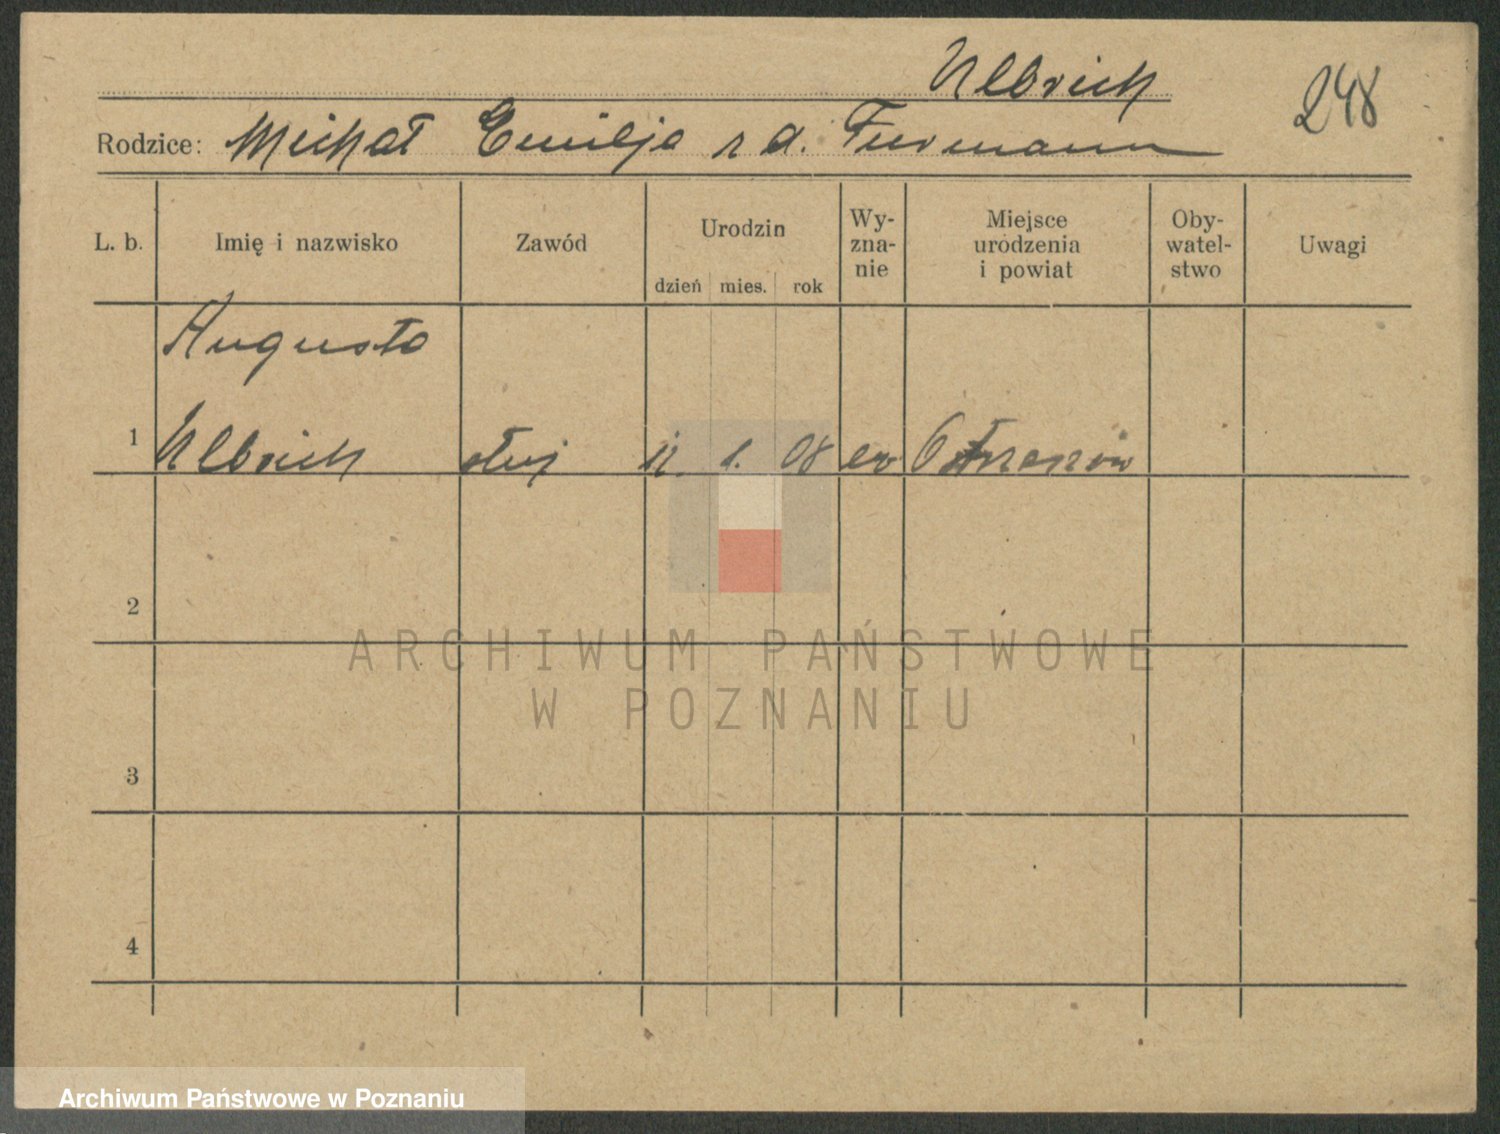 Ulbrich
248
Rodzice: Michał Emilja z d. Furmann
L. b. Imię i nazwisko Zawód Urodzin Wy-zna-nie Miejsce urodzenia i powiat Oby-watel-stwo Uwagi
dzień mies. rok
Augusta
1 Ulbrich służ 1. 08 ew
2
3
4
ARCHIWUM PAŃSTWOWE
W POZNANIU
Archiwum Państwowe w Poznaniu